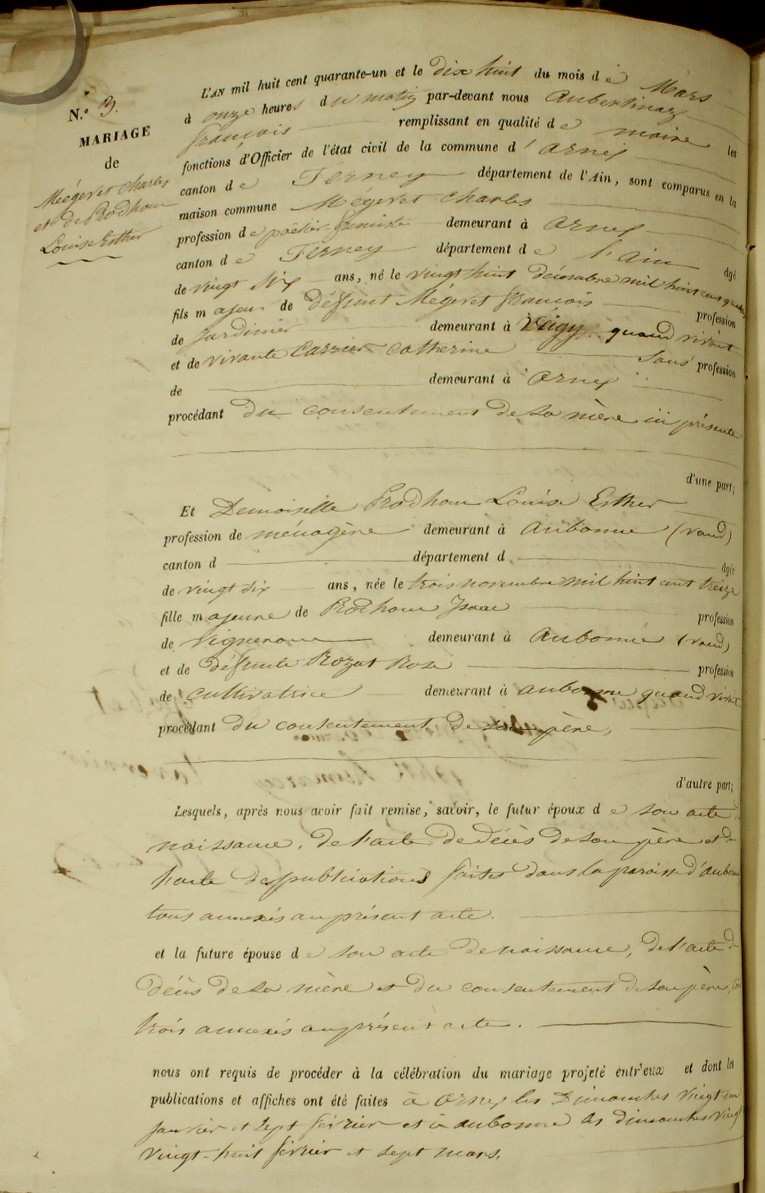 N.° 3.
MARIAGE
de
Mégevet Charles
et de Prodhom
Louise Esther
L'AN mil huit cent quarante-un et le dix huit du mois de Mars
à onze heures du matin par-devant nous Aubertin
françois remplissant en qualité de maire les
fonctions d'Officier de l'état civil de la commune d'Ornex
canton de Ferney département de l'Ain, sont comparus en la
maison commune Mégevet Charles
profession de demeurant à Ornex
canton de Ferney département de l'Ain âgé
de vingt six ans, né le vingt huit décembre mil huit cent
fils majeur de défunt Mégevet françois profession
de Jardinier demeurant à Veigy quand vivait
et de vivante Carrier Catherine sans profession
de demeurant à Ornex
procédant du consentement de sa mère ici présente
d'une part;
Et Demoiselle Prodhom Louise Esther
profession de ménagère demeurant à Aubonne (vaud)
canton d département d âgée
de vingt dix ans, née le trois novembre mil huit cent treize
fille majeure de Prodhom Isaac profession
de vigneron demeurant à Aubonne (vaud)
et de défunte Rozat Rose profession
de cultivatrice demeurant à aubonne quand vivait
procédant du consentement de son père,
d'autre part;
Lesquels, après nous avoir fait remise, savoir, le futur époux de son acte de
naissance, de l'acte de décès de son père et de
l'acte des publications faites dans la paroisse d'Aubonne
tous annexés au présent acte.
et la future épouse de son acte de naissance, de l'acte de
décès de sa mère et du consentement de son père,
trois annexés au présent acte.
nous ont requis de procéder à la célébration du mariage projeté entr'eux et dont les
publications et affiches ont été faites à Ornex les Dimanches vingt un
janvier et sept février et à aubonne les dimanches vingt
vingt-huit février et sept mars.